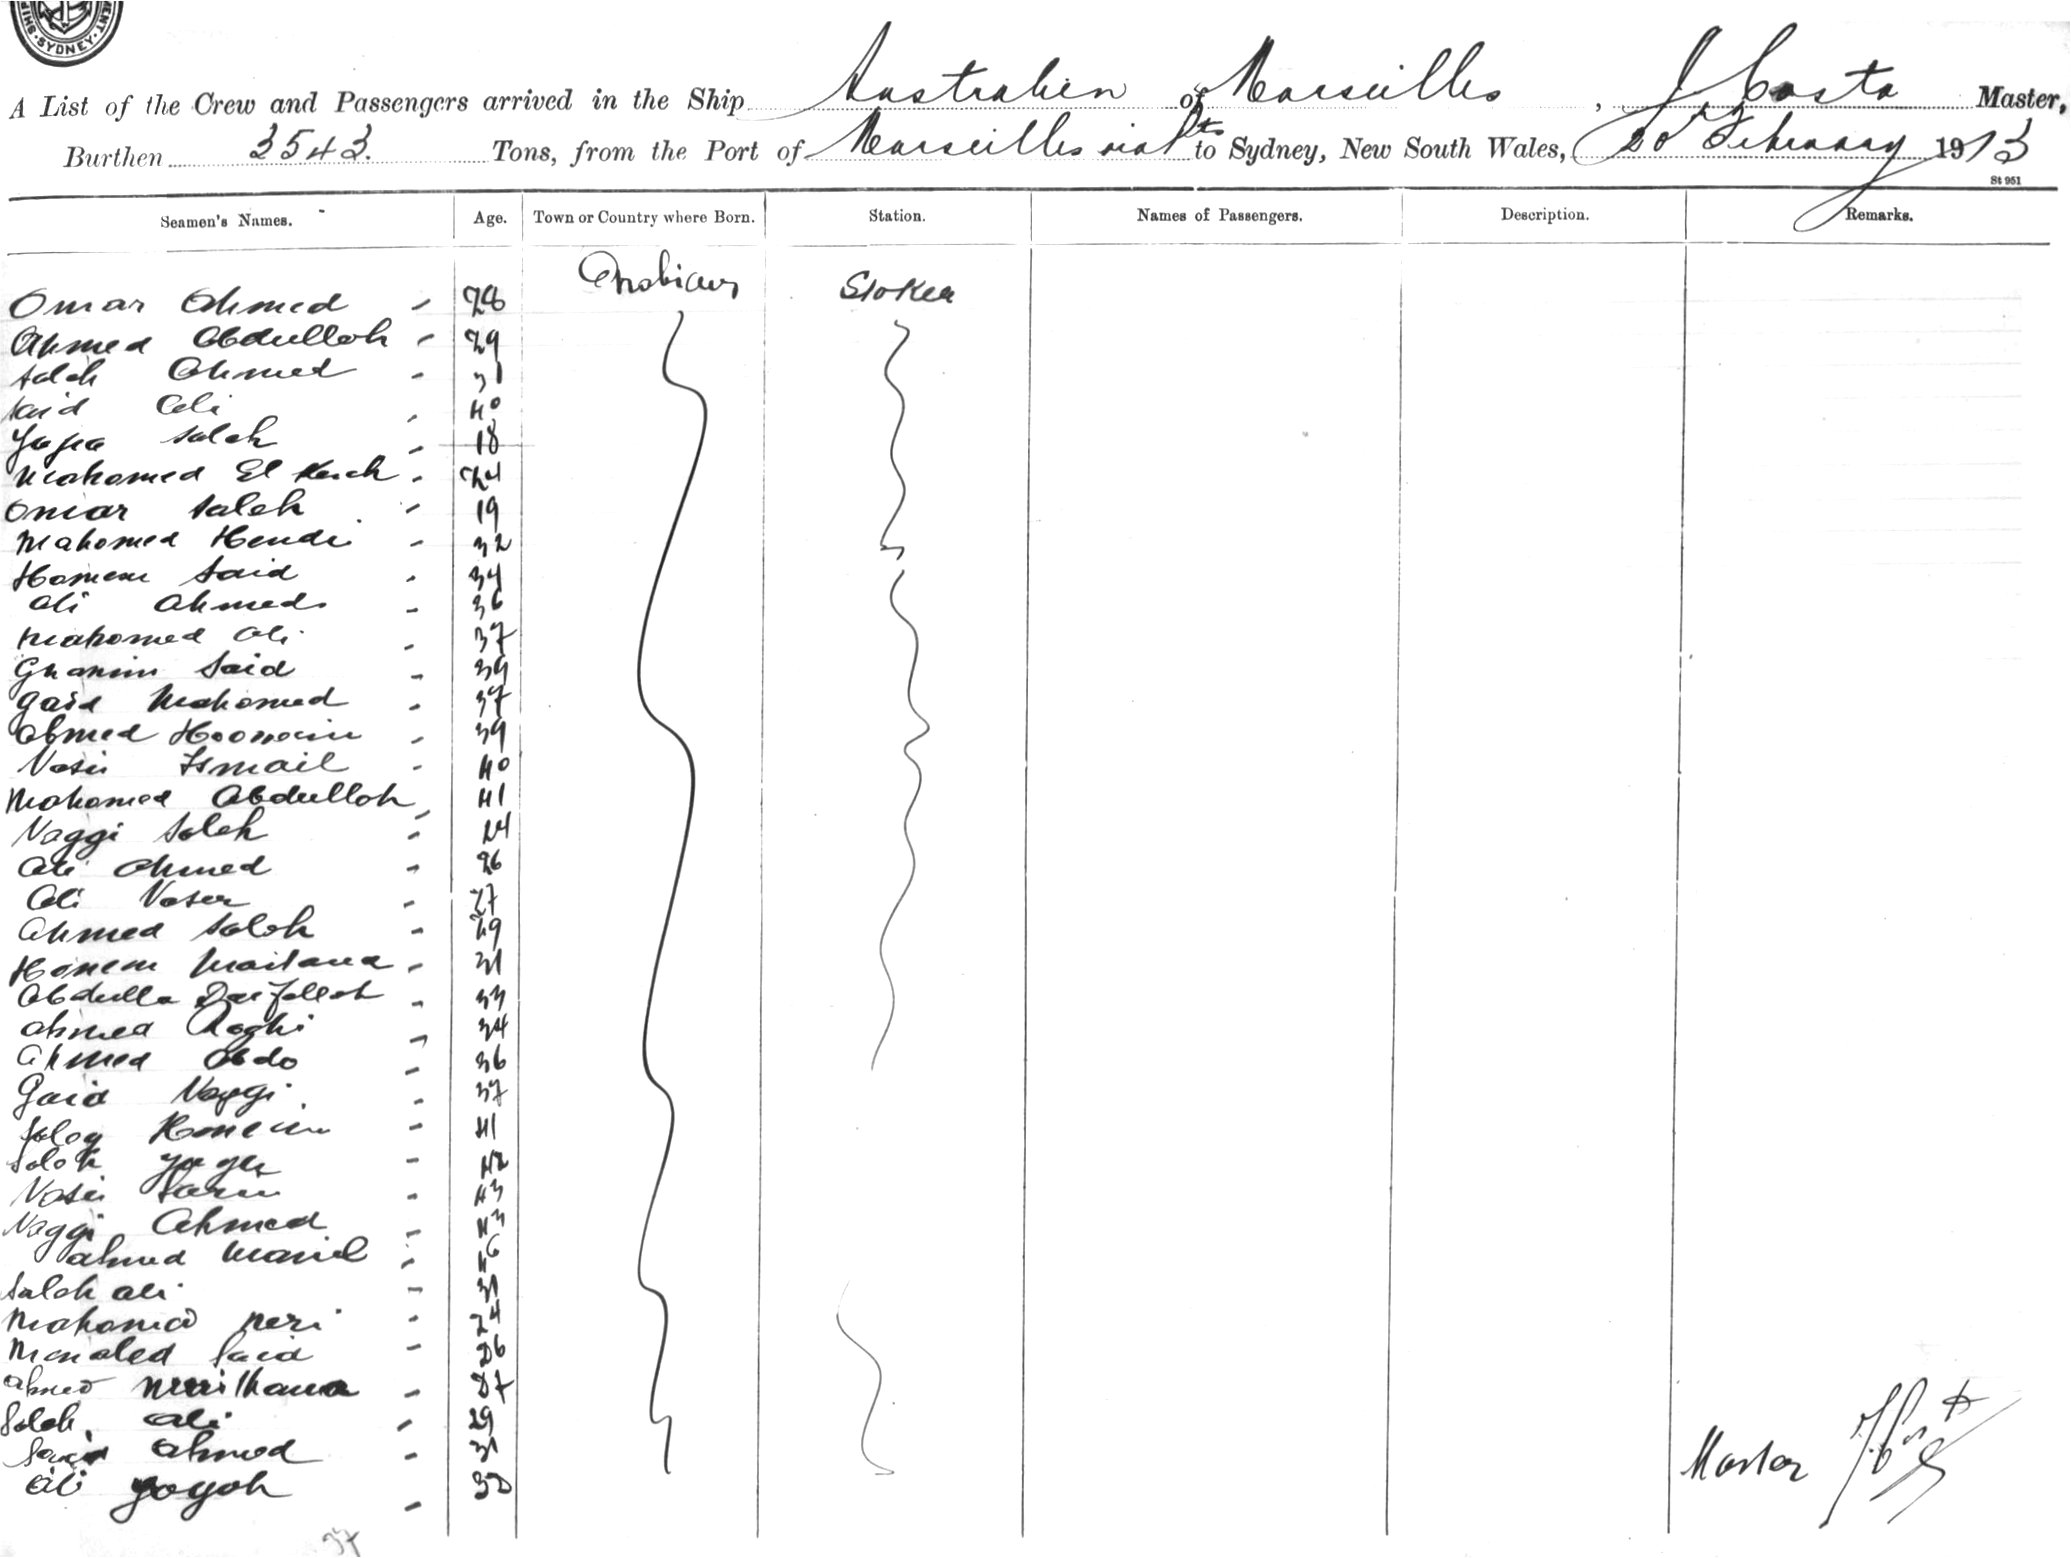 MENT · SYDNEY · SHIP
A List of the Crew and Passengers arrived in the Ship Australien of Marseilles, J Costa Master,
Burthen 3543. Tons, from the Port of Marseilles via Pts to Sydney, New South Wales, 20 February 1913
St 951
Seamen's Names. Age. Town or Country where Born. Station. Names of Passengers. Description. Remarks.
Omar Ahmed 28 Arabian Stoker
Ahmed Abdullah 29
Saleh Ahmed 31
Said Ali 40
Saleh 18
Mahomed El 24
Omar Saleh 19
Mahomed Hendi 32
Said 34
Ali Ahmed 36
Mahomed Ali 37
Said 39
Gaid Mahomed 37
Ahmed 39
Nasir Ismail 40
Mahomed Abdullah 41
Naggi Saleh 24
Ali Ahmed 26
Ali Naser 27
Ahmed Saleh 29
31
Abdulla 33
Ahmed 34
Ahmed Abdo 36
Gaid Naggi 37
41
Saleh 42
Nasir 43
Naggi Ahmed 43
Ahmed 46
Saleh Ali 31
Mahomed Neri 24
Said 26
Ahmed 27
Saleh Ali 29
Ahmed 31
Ali 30
Master
37